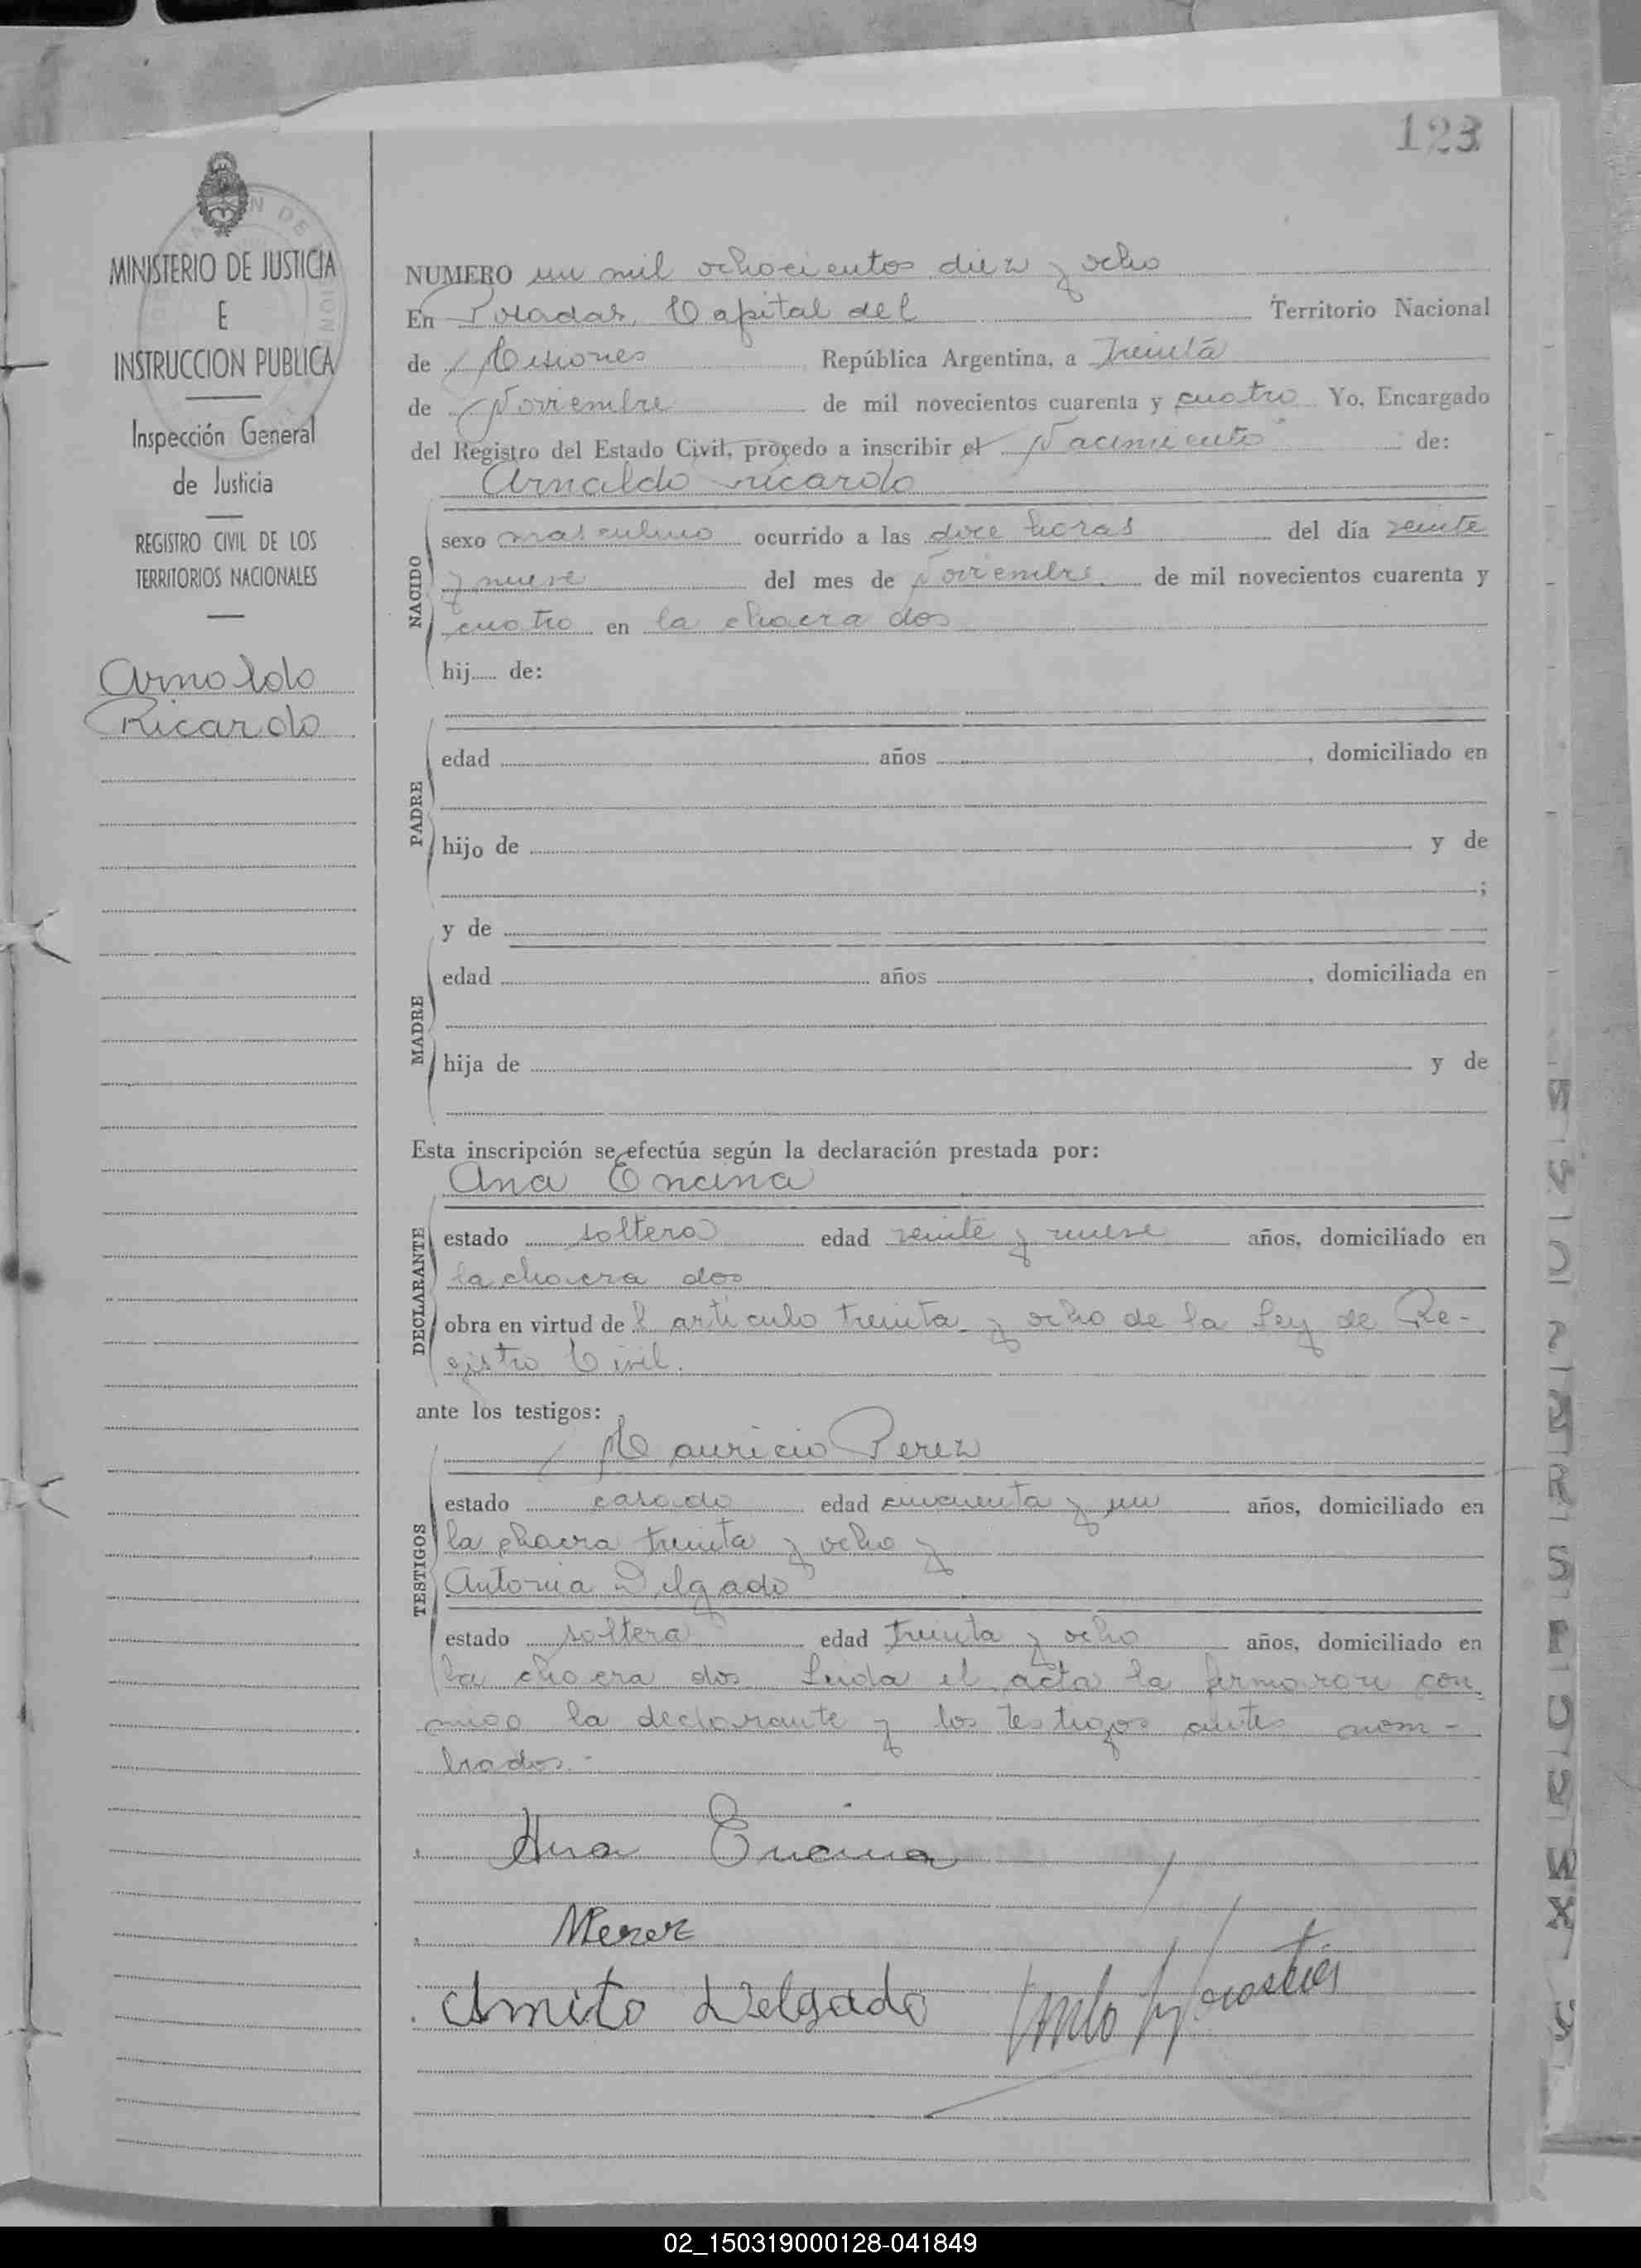 123
MINISTERIO DE JUSTICIA
E
INSTRUCCION PUBLICA
Inspección General
de Justicia
REGISTRO CIVIL DE LOS
TERRITORIOS NACIONALES
Arnoldo
Ricardo
NUMERO un mil ochocientos diez y ocho
En Posadas, Capital del Territorio Nacional
de Misiones República Argentina, a Treinta
de Noviembre de mil novecientos cuarenta y cuatro Yo, Encargado
del Registro del Estado Civil, procedo a inscribir el Nacimiento de:
Arnaldo ricardo
NACIDO
sexo masculino ocurrido a las doce horas del día veinte
y nueve del mes de Noviembre de mil novecientos cuarenta y
cuatro en la chacra dos
hij..... de:
PADRE
edad años , domiciliado en
hijo de y de
;
y de
MADRE
edad años , domiciliada en
hija de y de
Esta inscripción se efectúa según la declaración prestada por:
Ana Encina
DECLARANTE
estado soltera edad veinte y nueve años, domiciliado en
la chacra dos
obra en virtud de l articulo treinta y ocho de la Ley de Re-
gistro Civil.
ante los testigos:
Mauricio Perez
TESTIGOS
estado casado edad cincuenta y un años, domiciliado en
la chacra treinta y ocho y
Antonia Delgado
estado soltera edad treinta y ocho años, domiciliado en
la chacra dos Leida el acta la firmaron con
migo la declarante y los testigos antes nom-
brados.-
Ana Encina
MPerez
Delgado
02_150319000128-041849